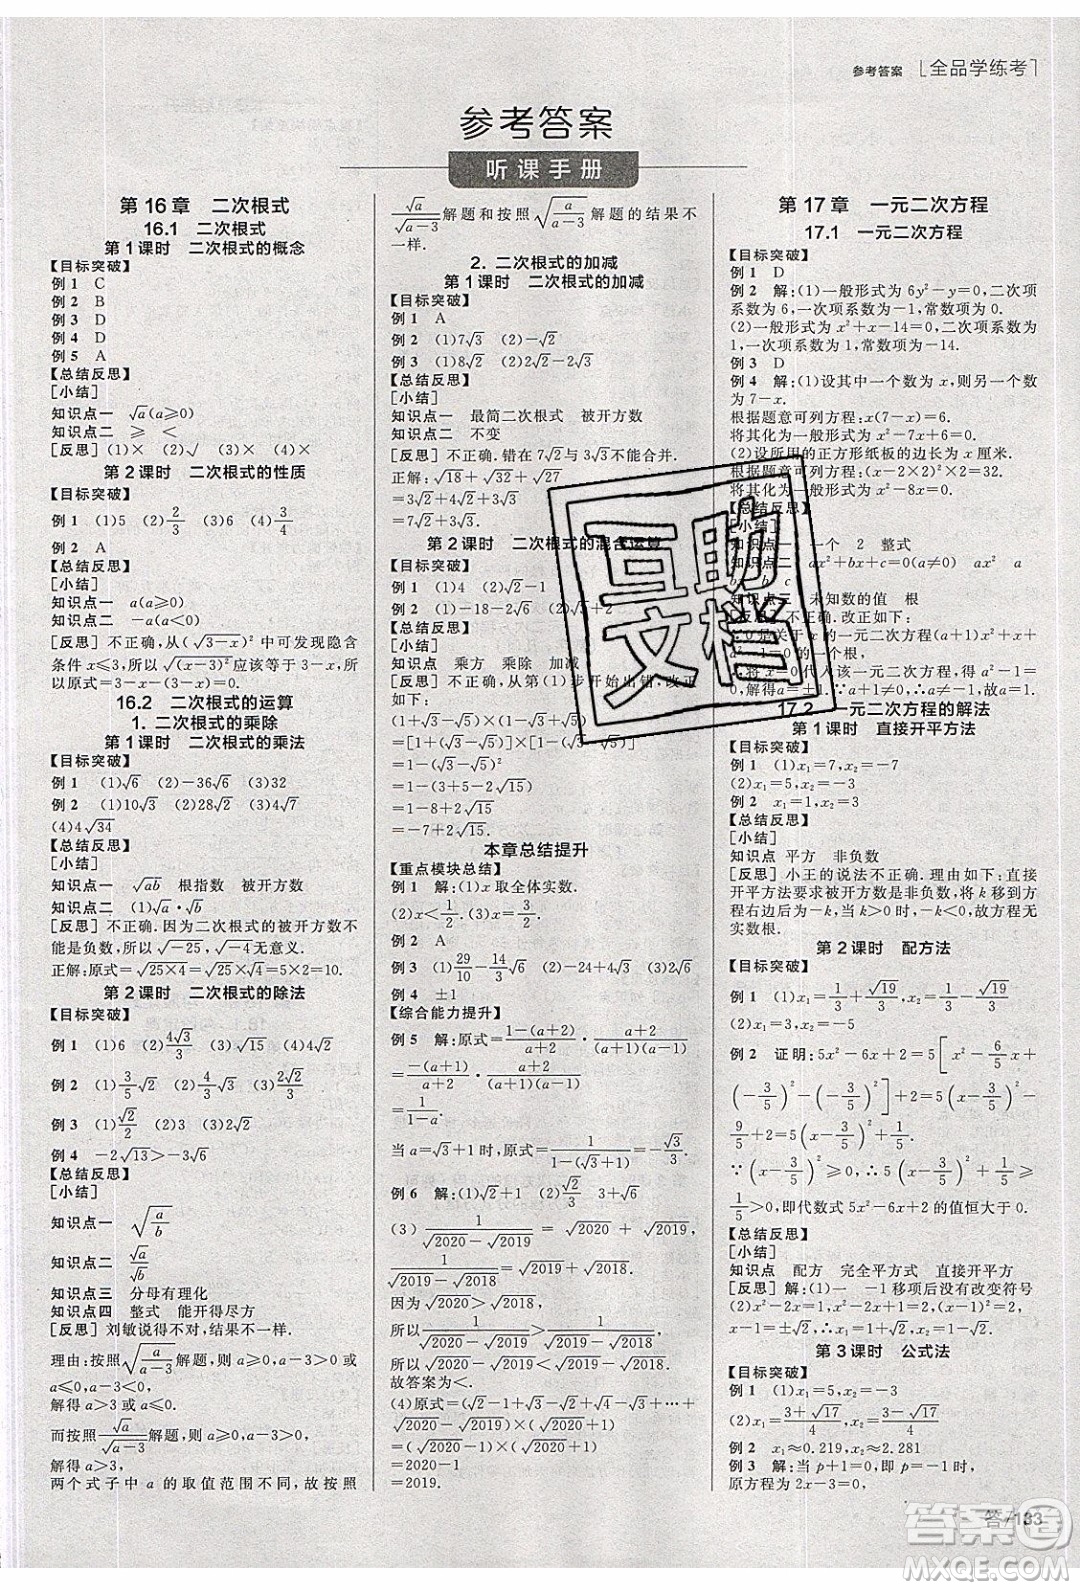 参考答案 [全品学练考]
参考答案
听课手册
第16章 二次根式
16.1 二次根式
第1课时 二次根式的概念
【目标突破】
例1 C
例2 B
例3 D
例4 D
例5 A
【总结反思】
[小结]
知识点一 √a(a≥0)
知识点二 ≥ <
[反思] (1)× (2)√ (3)× (4)×
第2课时 二次根式的性质
【目标突破】
例1 (1)5 (2)2/3 (3)6 (4)3/4
例2 A
【总结反思】
[小结]
知识点一 a(a≥0)
知识点二 -a(a<0)
[反思] 不正确,从(√(3-x))²中可发现隐含
条件x≤3,所以√((x-3)²)应该等于3-x,所
以原式=3-x-(3-x)=0.
16.2 二次根式的运算
1. 二次根式的乘除
第1课时 二次根式的乘法
【目标突破】
例1 (1)√6 (2)-36√6 (3)32
例2 (1)10√3 (2)28√2 (3)4√7
(4)4√34
【总结反思】
[小结]
知识点一 √ab 根指数 被开方数
知识点二 (1)√a·√b
[反思] 不正确.因为二次根式的被开方数不
能是负数,所以√-25,√-4无意义.
正解:原式=√(25×4)=√25×√4=5×2=10.
第2课时 二次根式的除法
【目标突破】
例1 (1)6 (2)4√3/3 (3)√15 (4)4√3
例2 (1)3/5√5 (2)4/3√3 (3)2√2/3
例3 (1)√2/2 (2)3 (3)2√2
例4 -2√13>-3√6
【总结反思】
[小结]
知识点一 √(a/b)
知识点二 √a/√b
知识点三 分母有理化
知识点四 整式 能开得尽方
[反思] 刘敏说得不对,结果不一样.
理由:按照√(a/(a-3))解题,则a≥0,a-3>0或
a≤0,a-3<0,
解得a>3或a≤0.
而按照√a/√(a-3)解题,则a≥0,a-3>0,
解得a>3.
两个式子中a的取值范围不同,故按照
√a/√(a-3)解题和按照√(a/(a-3))解题的结果不
一样.
2. 二次根式的加减
第1课时 二次根式的加减
【目标突破】
例1 A
例2 (1)7√3 (2)-√2
例3 (1)8√2 (2)5√2-2√3
【总结反思】
[小结]
知识点一 最简二次根式 被开方数
知识点二 不变
[反思] 不正确.错在7√2与5√3不能合并.
正解:√18+√12+√32+√27
=3√2+2√3+4√2+3√3
=7√2+5√3.
第2课时 二次根式的混合运算
【目标突破】
例1 (1)4 (2)√2-1
例2 (1)-18-2√6
【总结反思】
[小结]
知识点 乘方 乘除 加减
[反思] 不正确,从第(1)步开始出错.改正如下:
=1-(√3+√5)²
=1-(3+5+2√15)
=1-8-2√15
=-7-2√15.
本章总结提升
【重点模块总结】
例1 解:(1)x取全体实数.
(2)x<1/2 (3)x=3/2
例2 A
例3 (1)29/10-14/3√6 (2)√3
例4 ±1
【综合能力提升】
例5 解:原式=(1-(a+2))/(a+2)÷(a+2)/((a+2)(1-a))
=-(a+1)/(a+2)·(a+2)/((a+1)(a-1))
=1/(1-a).
当a=√3+1时,原式=1/(1-(√3+1))=-√3/3.
例6 解:(1)√2+1 (2)√2/3 (3)√3
(3) 1/(√2020-√2019) = √2020 + √2019,
1/(√2019-√2018)=√2019+√2018.
因为√2020>√2018,
所以1/(√2020-√2019)>1/(√2019-√2018).
故答案为<.
(4)原式=(√2-1+√3-√2+√4-√3+…+
√2020-√2019)(√2020+1)
=(√2020-1)(√2020+1)
=2020-1
=2019.
第17章 一元二次方程
17.1 一元二次方程
【目标突破】
例1 D
例2 解:(1)一般形式为6y²-y=0,二次项
系数为6,一次项系数为-1,常数项为0.
(2)一般形式为x²+x-14=0,二次项系数为
1,一次项系数为1,常数项为-14.
例3 D
例4 解:(1)设其中一个数为x,则另一个数
为7-x.
根据题意可列方程:x(7-x)=6.
将其化为一般形式为x²-7x+6=0.
(2)设所用的正方形纸板的边长为x厘米.
根据题意可列方程:(x-2×2)²×2=32.
将其化为一般形式为x²-8x=0.
【总结反思】
[小结]
知识点一 一个 2 整式
知识点二 ax²+bx+c=0(a≠0) ax² a
bx b c
知识点三 未知数的值 根
[反思] 不正确.改正如下:
=0是关于x的一元二次方程(a+1)x²+x+
a²-1=0的一个根,
17.2 一元二次方程的解法
第1课时 直接开平方法
【目标突破】
例1 (1)x₁=7,x₂=-7
(2)x₁=3,x₂=-3
例2 x₁=1,x₂=-3
【总结反思】
[小结]
知识点 平方 非负数
[反思] 小王的说法不正确.理由如下:直接
开平方法要求被开方数是非负数,将k移到方
程右边后为-k,当k>0时,-k<0,故方程无
实数根.
第2课时 配方法
【目标突破】
例1 (1)x₁=1/3+√19/3,x₂=1/3-√19/3
(2)x₁=3,x₂=-5
例2 证明:5x²-6x+2=5[x²-6/5x+
(-3/5)²-(-3/5)²]+2=5(x-3/5)²-
9/5+2=5(x-3/5)²+1/5.
∵(x-3/5)²≥0,∴5(x-3/5)²+
1/5>0,即代数式5x²-6x+2的值恒大于0.
【总结反思】
[小结]
知识点 配方 完全平方式 直接开平方
[反思] 解:(1)一 -1移项后没有改变符号
(2)x²-2x=1,x²-2x+1=2,(x-1)²=2,
x-1=±√2,所以x₁=1+√2,x₂=1-√2.
第3课时 公式法
【目标突破】
例1 (1)x₁=5,x₂=-3
(2)x₁=(3+√17)/4,x₂=(3-√17)/4
例2 x₁≈0.219,x₂≈2.281
例3 解:当p+1=0,即p=-1时,
原方程为-2x-3=0,
答/133
互助文档
答案圈
MXQE.COM